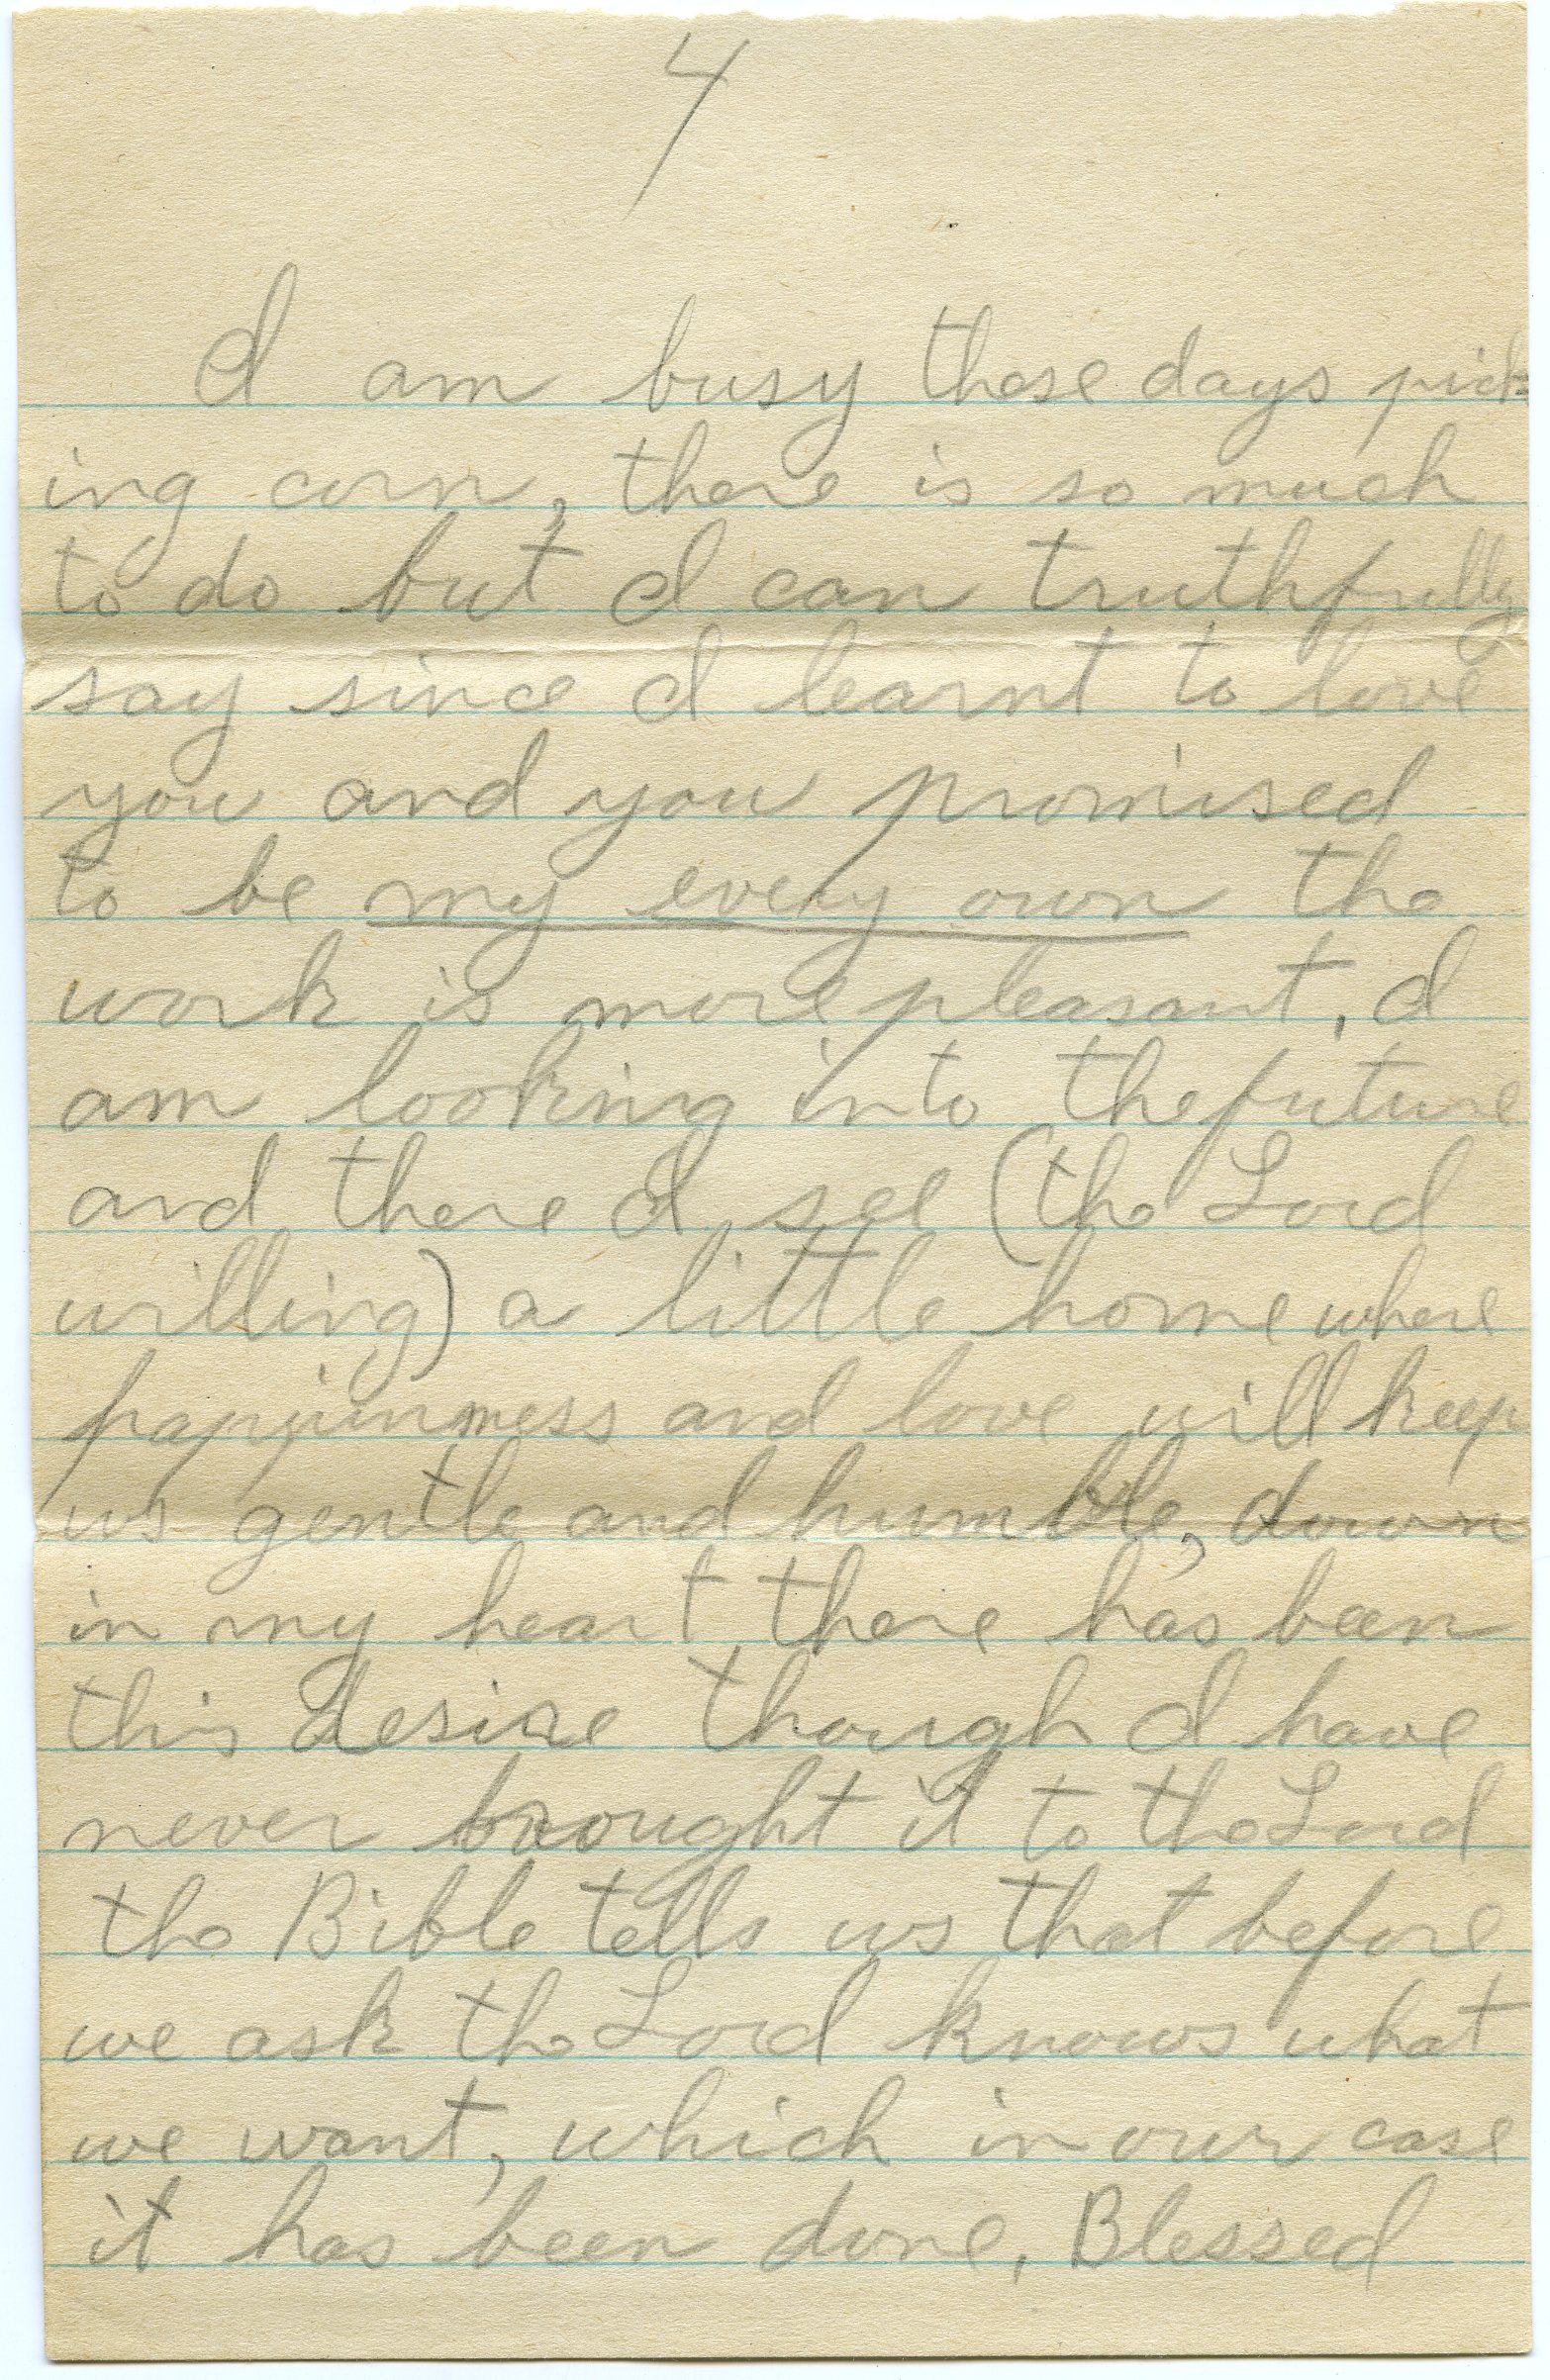 4
I am busy these days pick
ing corn, there is so much
to do but I can truthfully
say since I learnt to love
you and you promised
to be my every own the
work is more pleasant, I
am looking into the future
and there I see (the Lord
willing) a little home where
and love will keep
us gentle and humble, down
in my heart there has been
this desire though I have
never brought it to the Lord
the Bible tells us that before
we ask the Lord knows what
we want, which in our case
it has been done, Blessed